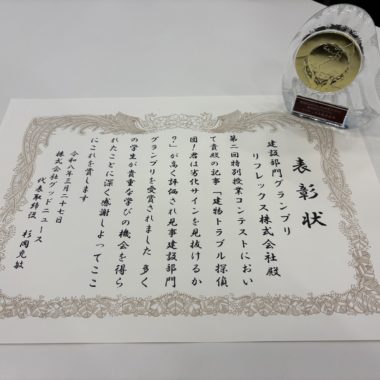 表彰状
建設部門グランプリ
リフレックス株式会社殿
第二回特別授業コンテストにおい
て貴殿の記事「建物トラブル探偵
団!君は劣化サインを見抜けるか
?」が高く評価され見事建設部門
グランプリを受賞されました 多く
の学生が貴重な学びの機会を得ら
れたことに深く感謝しよってここ
にこれを賞します
令和八年三月二十七日
株式会社グッドニュース
代表取締役 杉岡克敏